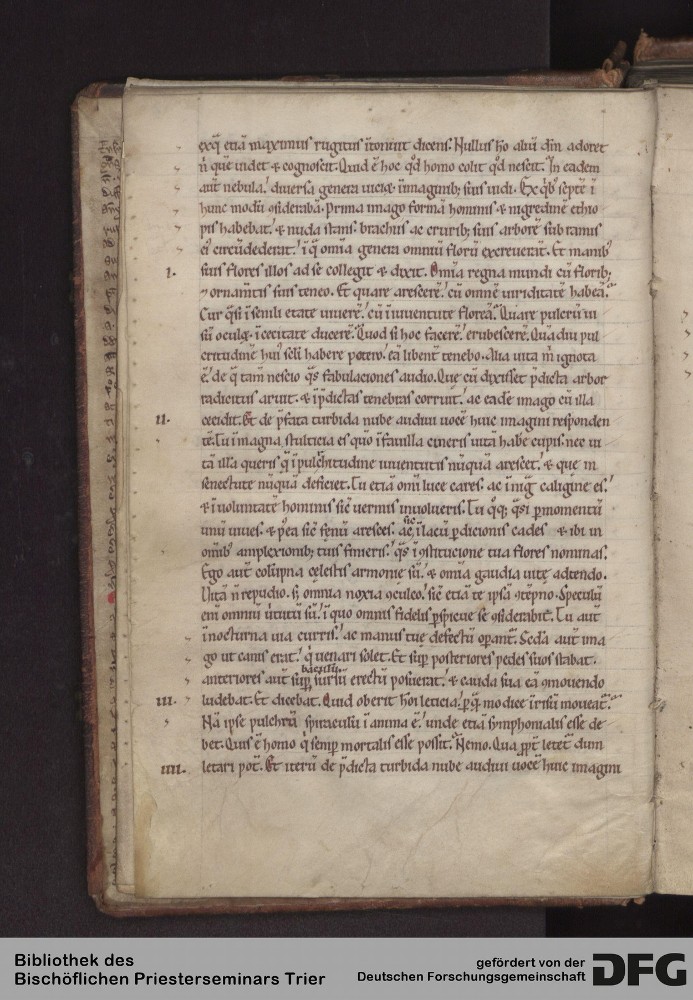 exq̄ etiā maximus rugitus ītonuit dicens. Nullus hō aliū dīn adoret
n̄ quē uidet & cognoscit. Quid ē hoc qd̄ homo colit qd̄ nescit. In eadem
aut̄ nebula. diuersa genera uicioꝝ īimaginib; suis uidi. Ex qⁱb; septē ī
hunc modū ꝯsiderabā. Prima imago formā hominis & nigredinē ethio
pis habebat. & nuda stans. brachiis ac crurib; suis arborē sub ramis
ei᾽ circūdederat. ī q̄ om̄ia genera omniū florū excreuerāt. Et manib᾽
I. suis flores illos ad se collegit & dixit. Om̄ia regna mundi cū florib;
⁊ ornam̄tis suis teneo. Et quare arescerē. cū omnē uiriditatē habeā.
Cur q̄si ī senili etate uiuerē. cū ī iuuentute floreā. Quare pulcrū ui
sū oculoꝝ. ī cecitate ducerē. Quod si hoc facerē. erubescerē. Quādiu pul
critudinē hui᾽ sc̄li habere potero. eā libent̄ tenebo. Alia uita m̄ ignota
ē. de q̄ tam̄ nescio q̄s fabulaciones audio. Que cū dixisset p̄dicta arbor
radicitus aruit. & ī p̄dictas tenebras corruit. ac eadē imago cū illa
II. cecidit. Et de p̄fata turbida nube audiui uocē huic imagini responden
tē. Tu ī magna stulticia es quō ī fauilla cineris uitā habē cupis. nec ui
tā illā queris q̄ ī pulchritudine iuuentutis nūquā arescet. & que in
senectute nūquā deficiet. Tu etiā om̄i luce cares. ac ī nigᵃ caligine es.
& ī uoluntatē hominis sic̄ uermis inuolueris. Tu q̄q; q̄si p momentū
unū uiues. & p᾽ea sic̄ fenū aresces. ac sic ī lacū p̄dicionis cades & ibi in
om̄ib᾽ amplexionib; tuis finieris. q̄s ī ꝯstitucione tua flores nominas.
Ego aut̄ colūpna cęlestis armonie sū. & om̄ia gaudia uitę adtendo.
Vitā n̄ repudio. sꝫ omnia noxia ꝯculco. sic̄ etiā te ipsā ꝯtēpno. Speculū
eni omniū uirtutū sū. ī quo omnis fidelis p̱spicue se ꝯsiderabit. Tu aut̄
ī nocturna uia curris. ac manus tue defectū operant᾽. Sed̄a aut̄ ima
go ut canis erat. qⁱ uenari solet. Et sup̱ posteriores pedes suos stabat.
anteriores aut̄ sup̱ baculū sursū erectū posuerat. & cauda sua eā ꝯmouendo
III. ludebat. Et dicebat. Quid oberit hoī leticia. p̱ q̄ modice ī risū moueat᾽.
Nā ipse pulchrū spiraculū ī anima ē. unde etiā symphonialis esse de
bet. Quis ē homo qⁱ semp̱ mortalis esse possit. Nemo. Qua pp̄t letet᾽ dum
IIII. letari pot̄. Et iterū de p̄dicta turbida nube audiui uocē huic imagini
Bibliothek des
Bischöflichen Priesterseminars Trier
gefördert von der
Deutschen Forschungsgemeinschaft
DFG